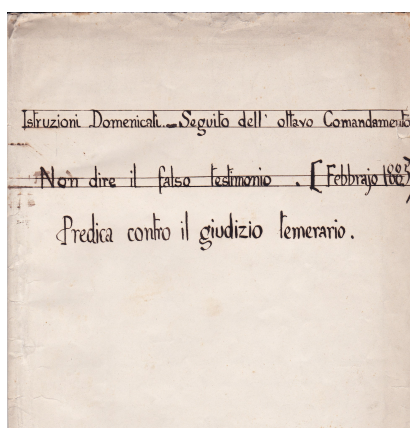 Istruzioni Domenicali. – Seguito dell' ottavo Comandamento
Non dire il falso testimonio. [Febbrajo
Predica contro il giudizio temerario.